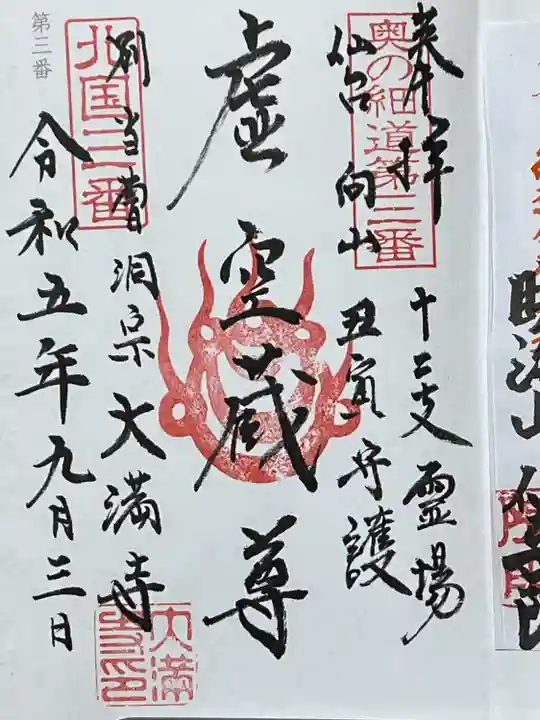 奉拝
十二支霊場
奥の細道第三番
仙台向山
丑寅守護
虚空蔵尊
北国三番
別当曹洞宗大満寺
大満寺印
令和五年九月三日
第三番